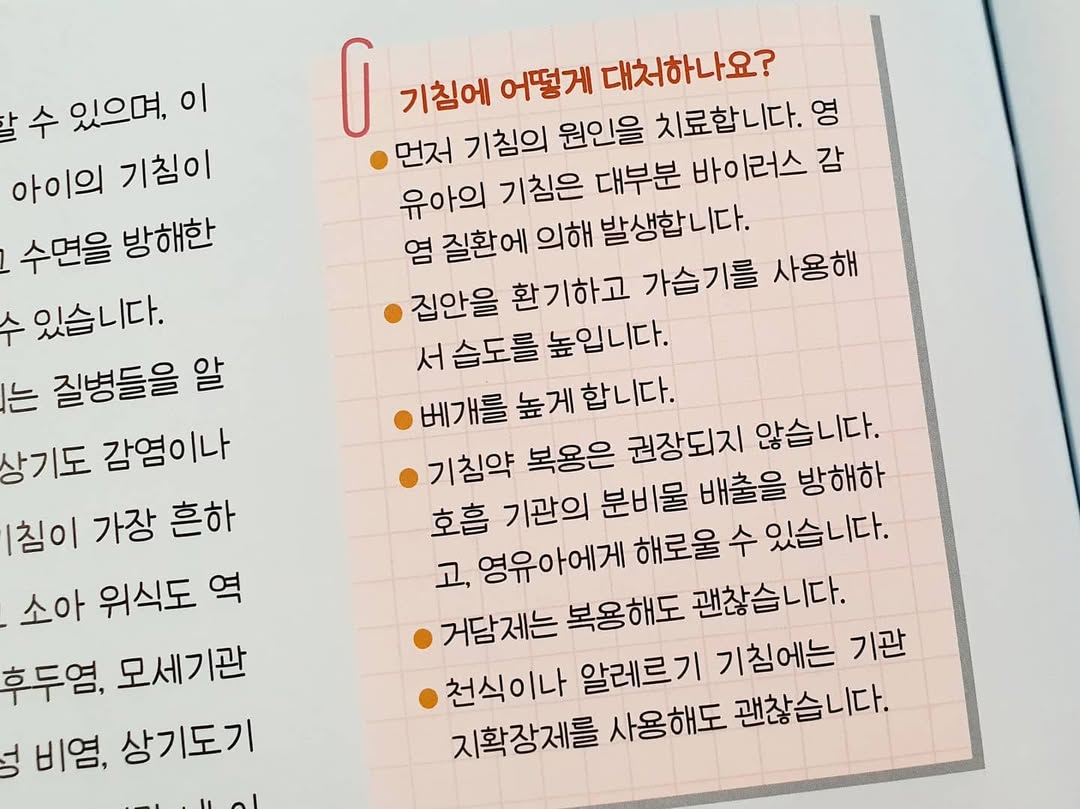 할 수 있으며, 이
아이의 기침이
수면을 방해한
수 있습니다.
질병들을 알
상기도 감염이나
기침이 가장 흔하
소아 위식도 역
후두염, 모세기관
성 비염, 상기도기
기침에 어떻게 대처하나요?
● 먼저 기침의 원인을 치료합니다. 영
유아의 기침은 대부분 바이러스 감
염 질환에 의해 발생합니다.
● 집안을 환기하고 가습기를 사용해
서 습도를 높입니다.
● 베개를 높게 합니다.
● 기침약 복용은 권장되지 않습니다.
호흡 기관의 분비물 배출을 방해하
고, 영유아에게 해로울 수 있습니다.
● 거담제는 복용해도 괜찮습니다.
● 천식이나 알레르기 기침에는 기관
지확장제를 사용해도 괜찮습니다.